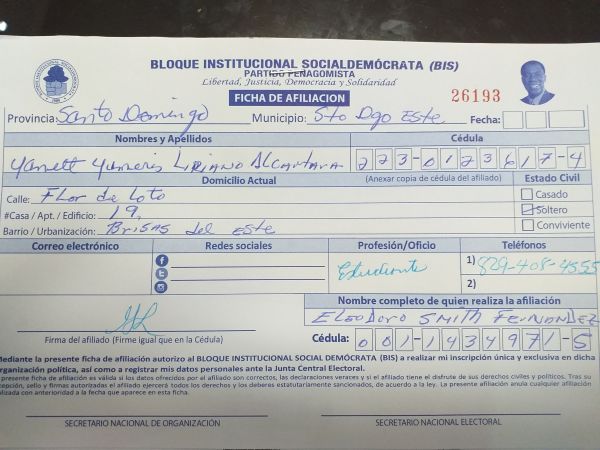 BLOQUE INSTITUCIONAL SOCIALDEMÓCRATA (BIS)
PARTIDO PEÑAGOMISTA
Libertad, Justicia, Democracia y Solidaridad
FICHA DE AFILIACION
26193
Provincia: Santo Domingo Municipio: Sto Dgo Este Fecha:
Nombres y Apellidos Cédula
Yanett Yumeris Liriano Alcantara 223-0123617-4
Domicilio Actual (Anexar copia de cédula del afiliado) Estado Civil
Calle: Flor de Loto Casado
#Casa / Apt. / Edificio: 19, Soltero
Barrio / Urbanización: Brisas del Este Conviviente
Correo electrónico Redes sociales Profesión/Oficio Teléfonos
Estudiante 1) 829-408-4555
2)
Nombre completo de quien realiza la afiliación
Eleodoro Smith Fernandez
Firma del afiliado (Firme igual que en la Cédula) Cédula: 001-1434971-5
Mediante la presente ficha de afiliación autorizo al BLOQUE INSTITUCIONAL SOCIAL DEMÓCRATA (BIS) a realizar mi inscripción única y exclusiva en dicha
organización política, así como a registrar mis datos personales ante la Junta Central Electoral.
presente ficha de afiliación es válida si los datos ofrecidos por el afiliado son correctos, las declaraciones veraces y si el afiliado tiene el disfrute de sus derechos civiles y políticos. Tras su
cepción, sello y firmas autorizadas el afiliado ejercerá todos los derechos y los deberes estatutariamente sancionados, de acuerdo a la ley. La presente afiliación anula cualquier afiliación
alizada con anterioridad a la fecha que aparece en esta ficha.
SECRETARIO NACIONAL DE ORGANIZACIÓN SECRETARIO NACIONAL ELECTORAL